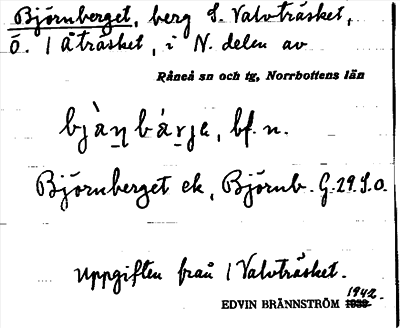 Björnberget, berg S. Valvträsket,
ö. / Åträsket, i N. delen av
Råneå sn och tg, Norrbottens län
bjὰɳbárje, bf. n.
Björnberget ek, Björnb. G. 29. S.o.
Uppgiften från / Valvträsket.
1942.
EDVIN BRÄNNSTRÖM 1939